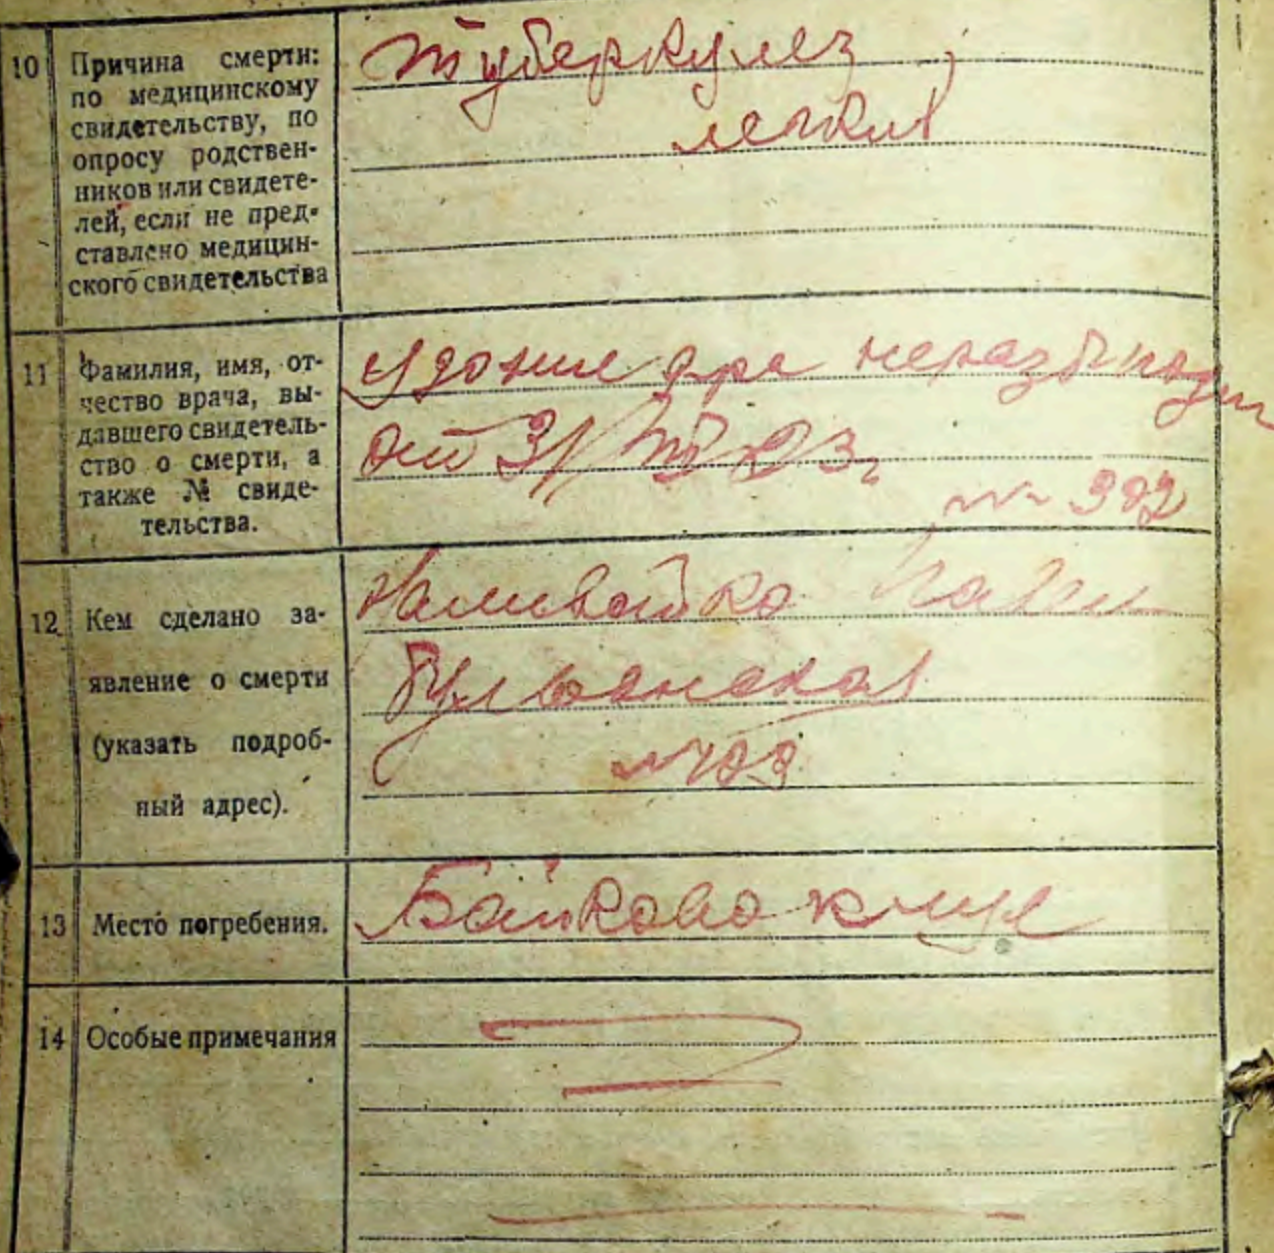 10
Причина смерти:
по медицинскому
свидетельству, по
опросу родствен-
ников или свидете-
лей, если не пред-
ставлено медицин-
ского свидетельства
туберкулез
легких
11
Фамилия, имя, от-
чество врача, вы-
давшего свидетель-
ство о смерти, а
также № свиде-
тельства.
д-ра неразб
от 31/
№ 392
12
Кем сделано за-
явление о смерти
(указать подроб-
ный адрес).
Наливайко
Бульонская
13
Место погребения.
Байково
14
Особые примечания